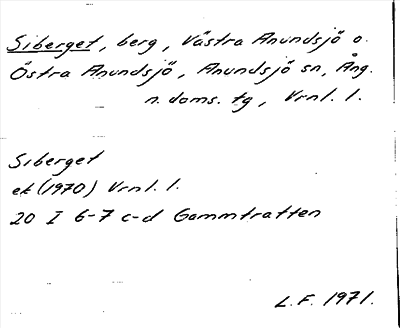 Siberget, berg, Västra Anundsjö o.
Östra Anundsjö, Anundsjö sn, Ång.
n. doms. tg, Vrnl. l.
Siberget
ek (1970) Vrnl. l.
20 I 6-7 c-d Gammtratten
L.F. 1971.